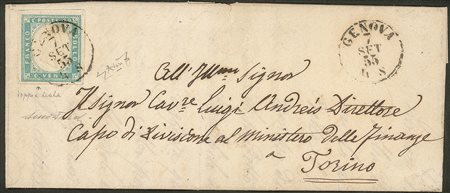 GENOVA
7
SET
55
GENOVA
7
SET
55
All' Illmo Signor
Il Signor Cavre Luigi Andreis Direttore
Capo di Divisione al Ministero delle Finanze
a
Torino